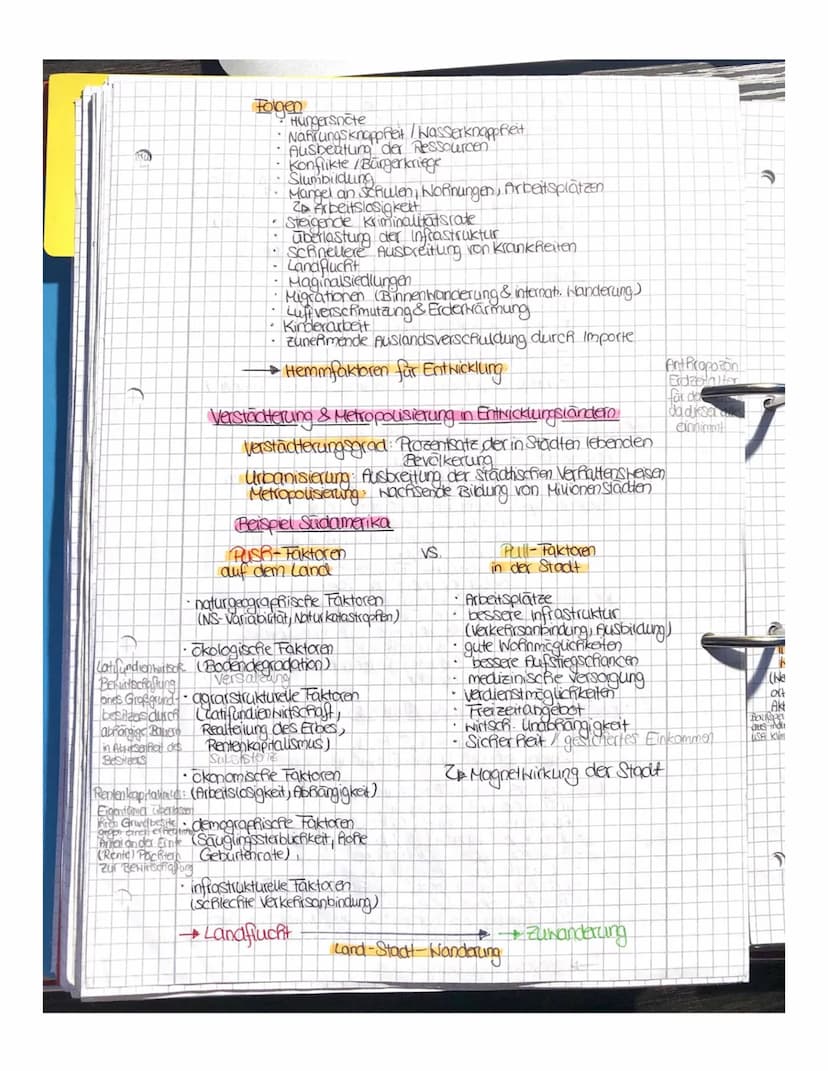 Folgen
· Hungersnöte
· Nahrungsknappheit / Wasserknappheit
· Ausbeutung der Ressourcen
· Konflikte / Bürgerkriege
· Slumbildung
· Mangel an Schulen, Wohnungen, Arbeitsplätzen
↳ Arbeitslosigkeit
· steigende Kriminalitätsrate
· Überlastung der Infrastruktur
· schnellere Ausbreitung von Krankheiten
· Landflucht
· Maginalsiedlungen
· Migrationen (Binnenwanderung & internat. Wanderung)
· Luftverschmutzung & Erderwärmung
· Kinderarbeit
· zunehmende Auslandsverschuldung durch Importe
→ Hemmfaktoren für Entwicklung
Anthropozän
Erdzeitalter
für de
da dieser
einnimmt
Verstädterung & Metropolisierung in Entwicklungsländern
Verstädterungsgrad: Prozentsatz der in Städten lebenden
Bevölkerung
Urbanisierung: Ausbreitung der städtischen Verhaltensweisen
Metropolisierung: Wachsende Bildung von Millionenstädten
Beispiel Südamerika
Push-Faktoren vs. Pull-Faktoren
auf dem Land in der Stadt
· naturgeographische Faktoren
(NS-Variabilität, Naturkatastrophen)
· ökologische Faktoren
(Bodendegradation)
Versalzung
· agrarstrukturelle Faktoren
(Latifundienwirtschaft,
Realteilung des Erbes,
Rentenkapitalismus)
Subsistenz
· ökonomische Faktoren
(Arbeitslosigkeit, Abhängigkeit)
· demographische Faktoren
(Säuglingssterblichkeit, hohe
Geburtenrate)
· infrastrukturelle Faktoren
(schlechte Verkehrsanbindung)
Latifundienwirtsch.
Bewirtschaftung
eines Großgrund-
besitzes durch
abhängige Bauern
in Abwesenheit des
Besitzers
Rentenkapitalismus:
Eigentümer überlassen
ihren Grundbesitz
gegen einen
Anteil an der Ernte
(Rente) Pächtern
zur Bewirtschaftung
· Arbeitsplätze
· bessere Infrastruktur
(Verkehrsanbindung, Ausbildung)
· gute Wohnmöglichkeiten
· bessere Aufstiegschancen
· medizinische Versorgung
· Verdienstmöglichkeiten
· Freizeitangebot
· wirtsch. Unabhängigkeit
· Sicherheit / gesichertes Einkommen
↳ Magnetwirkung der Stadt
→ Landflucht → Zuwanderung
Land-Stadt-Wanderung